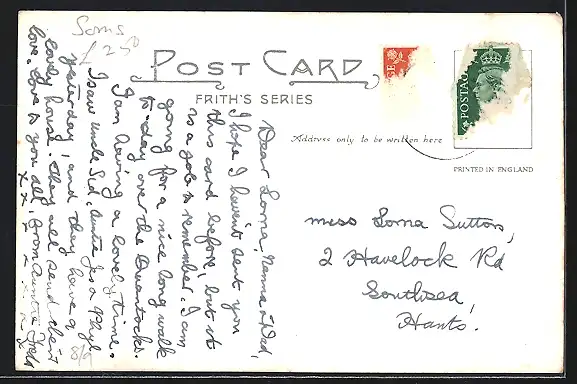 Soms
£ 2.50
POST CARD
FRITH'S SERIES
Address only to be written here
POSTAG
PRINTED IN ENGLAND
Dear Lorna, Nanna & Dad,
I hope I haven't sent you
this card before, but it
is a gale to remember. I am
going for a nice long walk
to-day over the Quantocks.
I am having a lovely time.
I saw Uncle Sid, Auntie Jes & Phyl
yesterday, and they have a
lovely house. They all send their
love. Love to you all, from Auntie
x x x x x x
8/9
Miss Lorna Sutton,
2 Havelock Rd
Southsea,
Hants.